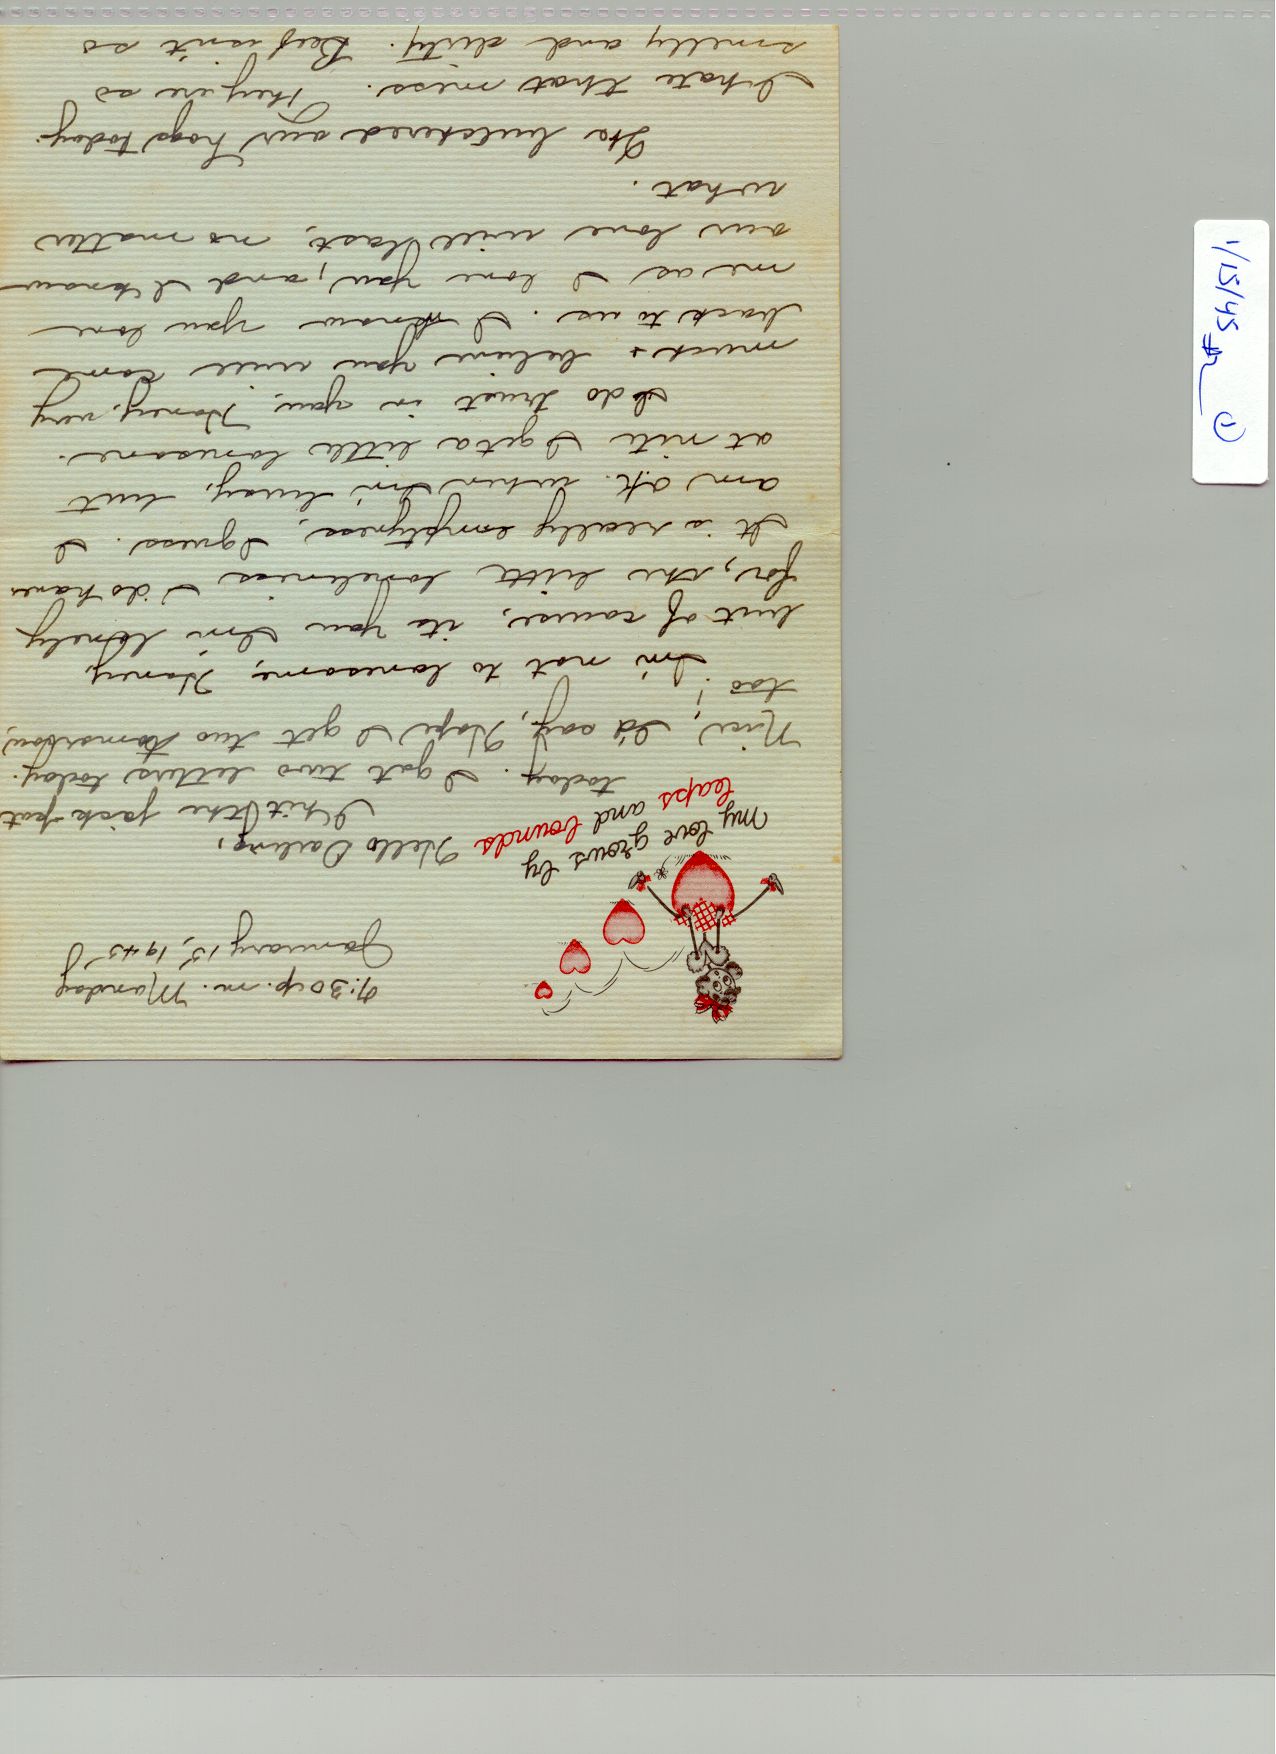 9:30 p.m. Monday
January 15, 1945
My love grows by
leaps and bounds
Hello Darling,
I hit the jack-pot
today. I got two letters today.
Nice, I'd say, Hope I get two tomorrow,
too!
I'm not to lonesome, Honey,
but of course, its you I'm lonely
for, the little loneliness I do have.
It is really emptyness, I guess. I
am o.k. when I'm busy, but
at nite I get a little lonesome.
I do trust in you, Honey, very
much + believe you will come
back to us. I know you love
me as I love you, and I know
our love will last, no matter
what.
We butchered our hogs today.
I hate that mess. They're so
smelly and dirty. Beef isn't so
1/15/45 #2 1)